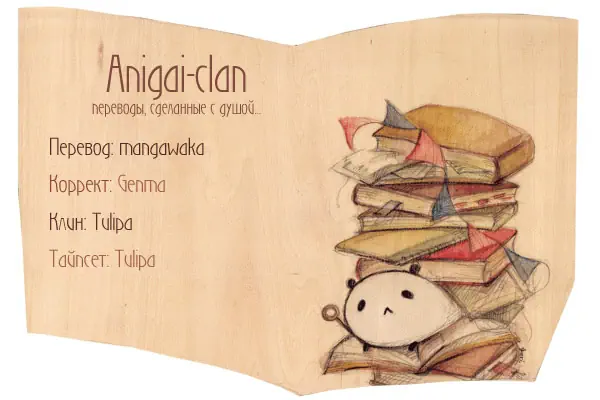 Anigai-clan
переводы, сделанные с душой...
Перевод: mangawaka
Коррект: Genma
Клин: Tulipa
Тайпсет: Tulipa